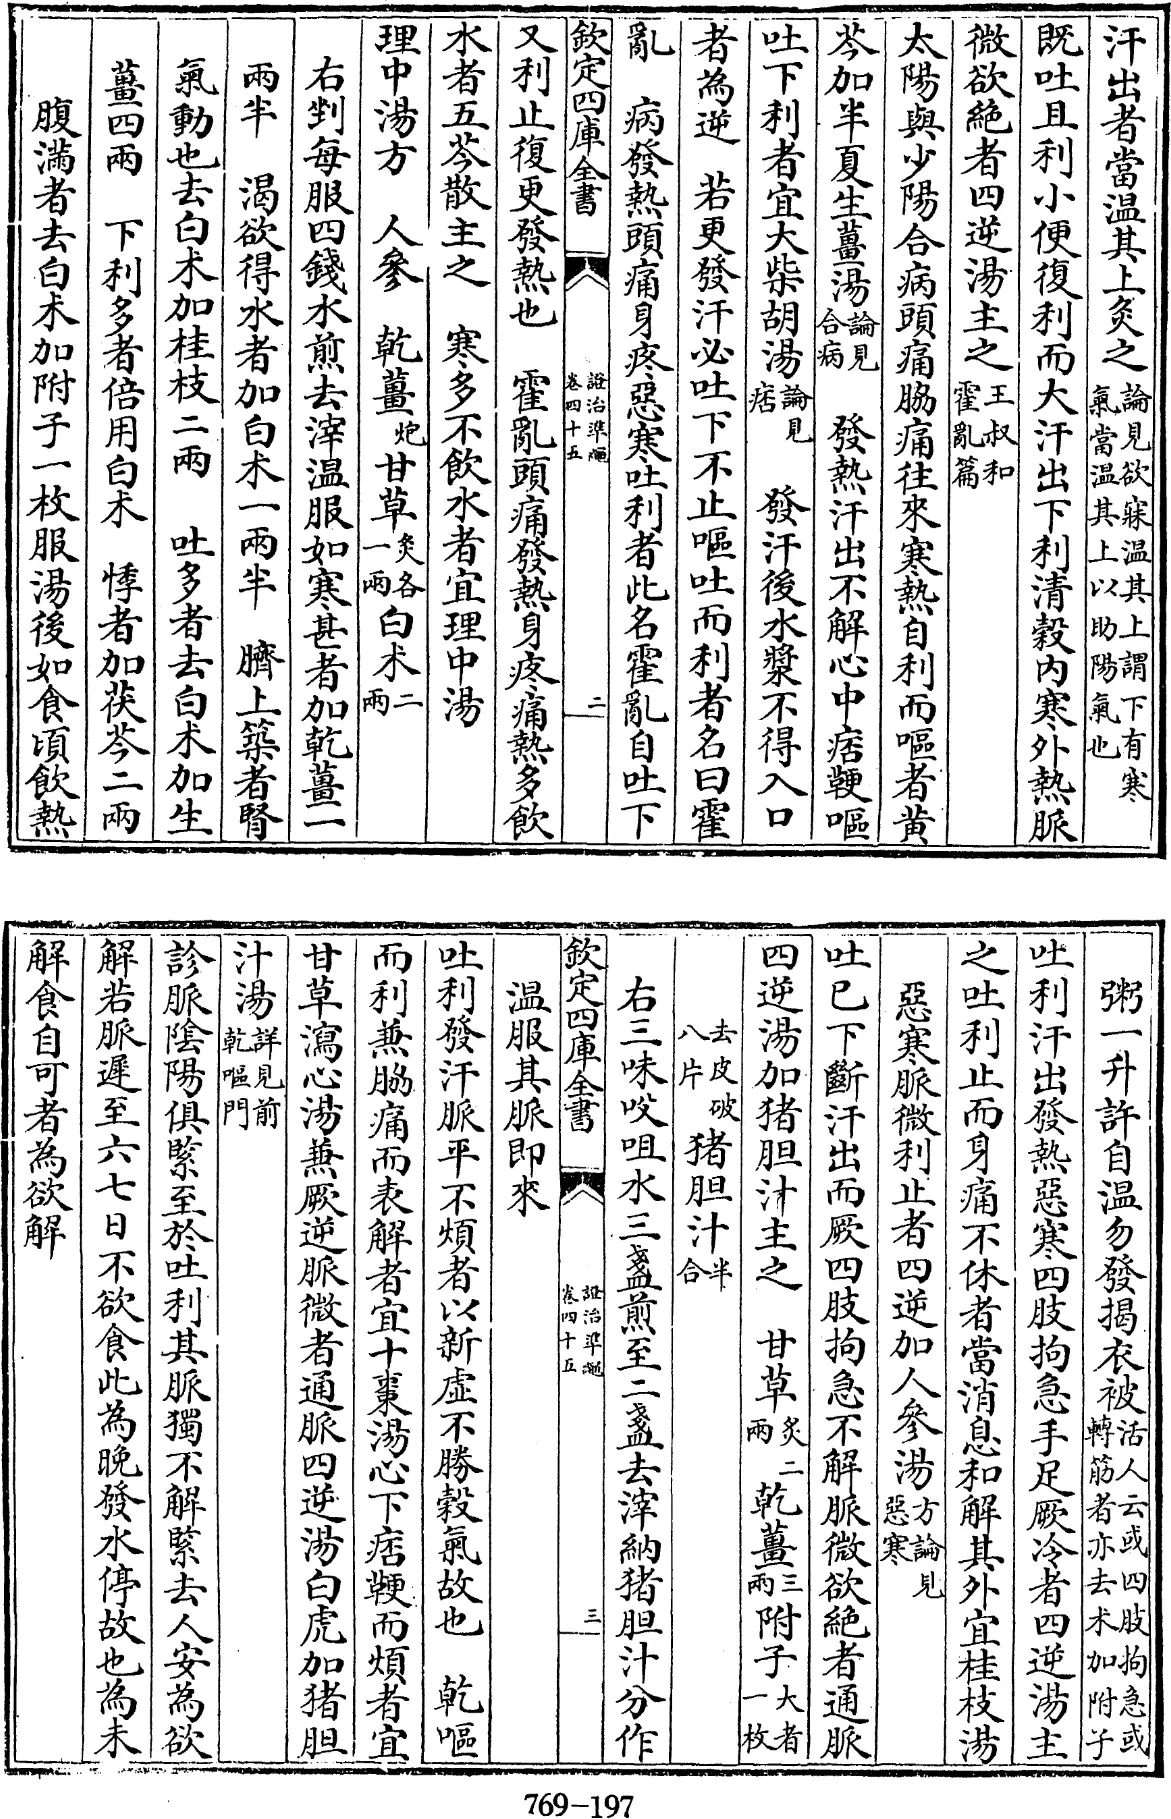 汗出者當温其上灸之論見欲寐温其上謂下有寒氣當温其上以助陽氣也
既吐且利小便復利而大汗出下利清穀内寒外熱脈
微欲絶者四逆湯主之王叔和霍亂篇
太陽與少陽合病頭痛脇痛往來寒熱自利而嘔者黄
芩加半夏生薑湯論見合病　發熱汗出不解心中痞鞕嘔
吐下利者宜大柴胡湯論見痞　發汗後水漿不得入口
者為逆　若更發汗必吐下不止嘔吐而利者名曰霍
亂　病發熱頭痛身疼惡寒吐利者此名霍亂自吐下
欽定四庫全書　證治準繩卷四十五　二
又利止復更發熱也　霍亂頭痛發熱身疼痛熱多飲
水者五苓散主之　寒多不飲水者宜理中湯
理中湯方　人參　乾薑炮甘草炙各一兩白术二兩
右剉每服四錢水煎去滓温服如寒甚者加乾薑二
兩半　渴欲得水者加白术一兩半　臍上築者腎
氣動也去白术加桂枝二兩　吐多者去白术加生
薑四兩　下利多者倍用白术　悸者加茯苓二兩
腹滿者去白术加附子一枚服湯後如食頃飲熱
粥一升許自温勿發揭衣被活人云或四肢拘急或轉筋者亦去术加附子
吐利汗出發熱惡寒四肢拘急手足厥冷者四逆湯主
之吐利止而身痛不休者當消息和解其外宜桂枝湯
惡寒脈微利止者四逆加人參湯方論見惡寒
吐已下斷汗出而厥四肢拘急不解脈微欲絶者通脈
四逆湯加猪胆汁主之　甘草炙二兩乾薑三兩附子大者一枚
去皮破八片猪胆汁半合
右三味㕮咀水三盞煎至二盞去滓納猪胆汁分作
欽定四庫全書　證治準繩卷四十五　三
温服其脈即來
吐利發汗脈平不煩者以新虚不勝穀氣故也　乾嘔
而利兼脇痛而表解者宜十棗湯心下痞鞕而煩者宜
甘草瀉心湯兼厥逆脈微者通脈四逆湯白虎加猪胆
汁湯詳見前乾嘔門
診脈陰陽俱緊至於吐利其脈獨不解緊去人安為欲
解若脈遲至六七日不欲食此為晚發水停故也為未
解食自可者為欲解
769-197